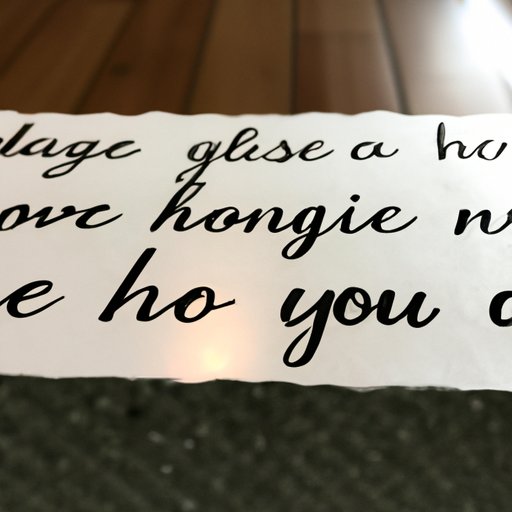 lage glse a ho
ovc hongie n
e ho you a